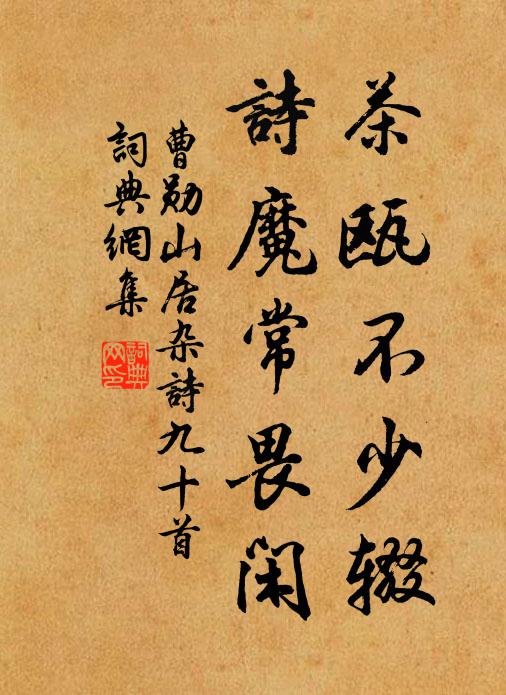 茶瓯不少辍
詩魔常畏闲
曹勋山居杂詩九十首
詞典網集
詞典网印